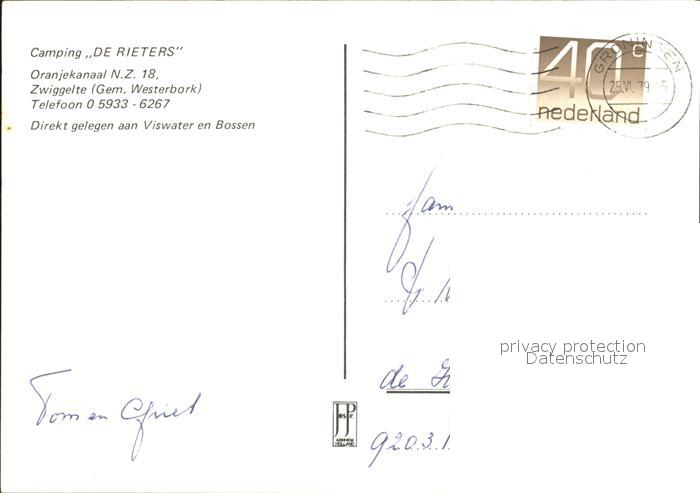 Camping „DE RIETERS"
Oranjekanaal N.Z. 18,
Zwiggelte (Gem. Westerbork)
Telefoon 0 5933 - 6267
Direkt gelegen aan Viswater en Bossen
40 c
nederland
GRONINGEN
25.VI.79
fam
privacy protection
Datenschutz
de
Tom en Griet
JosPe
ARNHEM
HOLLAND
9203.1